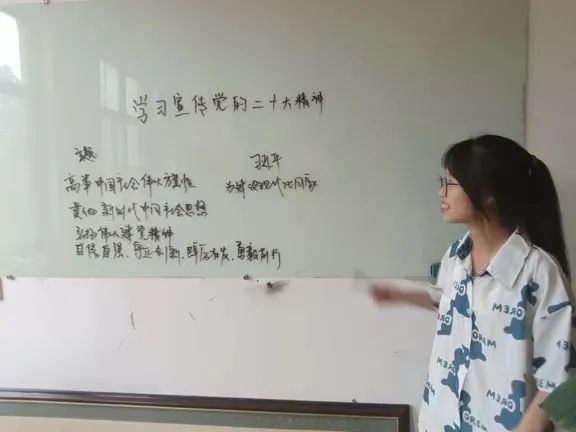 学习宣传党的二十大精神
主题
高举中国社会伟大旗帜
新时代中国社会思想
弘扬伟大建党精神
自信自强,守正创新,踔厉奋发,勇毅前行
习近平
为建设现代化国家
OREM